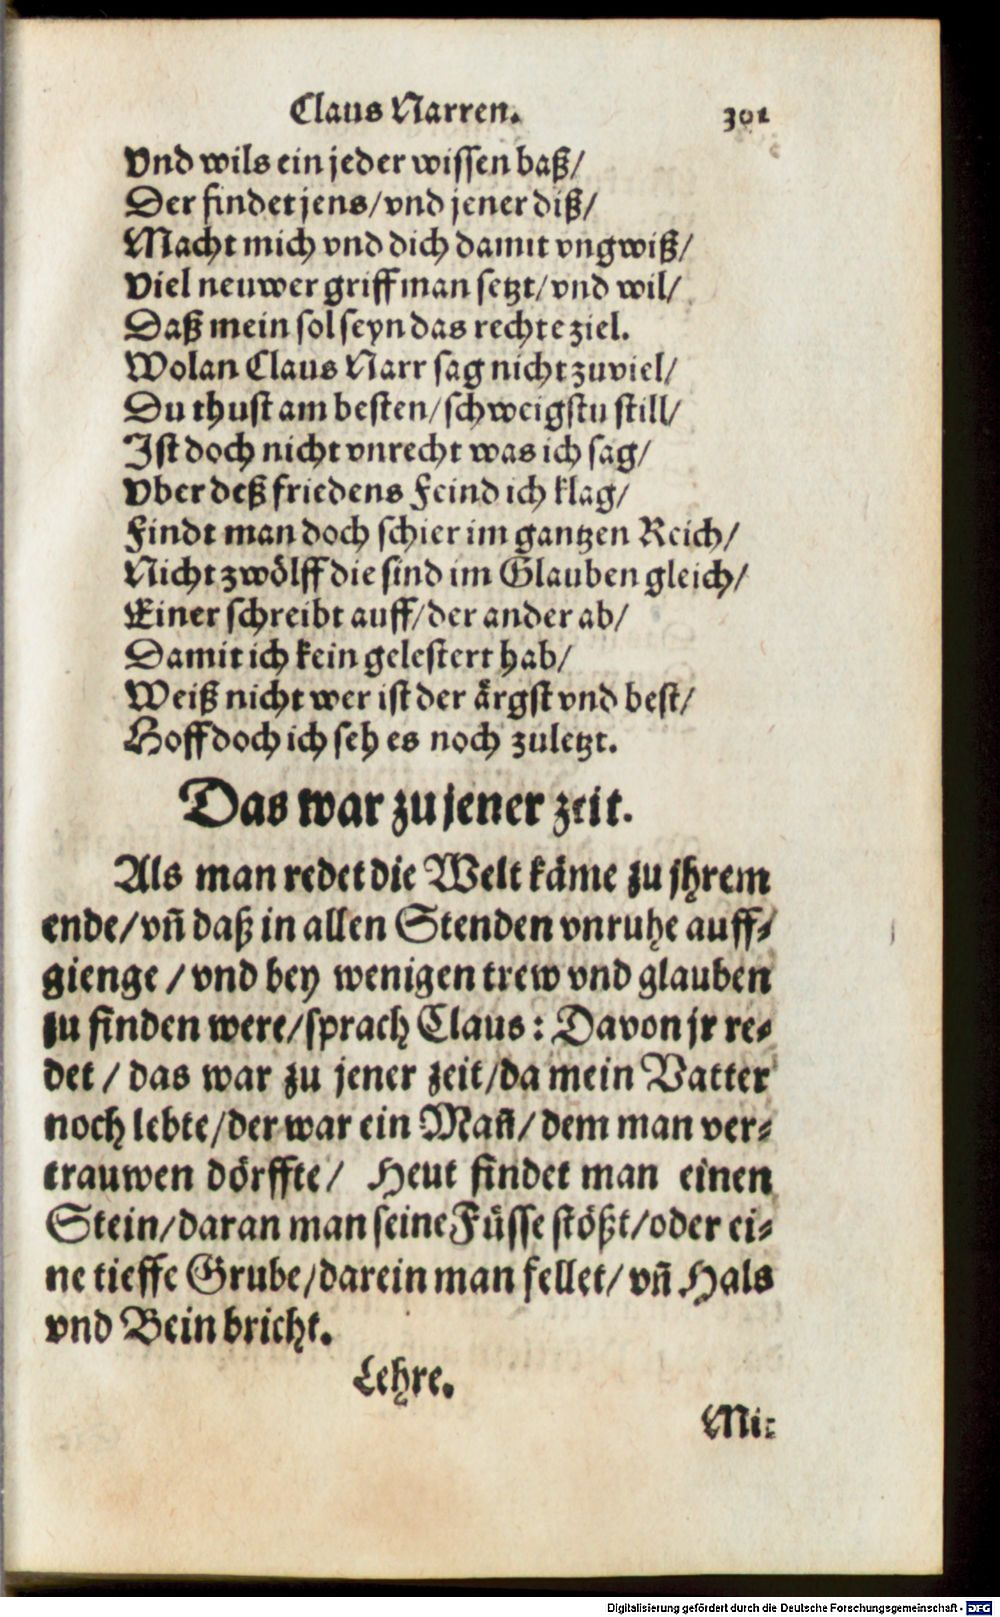 Claus Narren. 301
Vnd wils ein jeder wissen baß/
Der findet jens/vnd jener diß/
Macht mich vnd dich damit vngwiß/
Viel neuwer griff man setzt/vnd wil/
Daß mein sol seyn das rechte ziel.
Wolan Claus Narr sag nicht zuviel/
Du thust am besten/schweigstu still/
Ist doch nicht vnrecht was ich sag/
Vber deß friedens Feind ich klag/
Findt man doch schier im gantzen Reich/
Nicht zwölff die sind im Glauben gleich/
Einer schreibt auff/der ander ab/
Damit ich kein gelestert hab/
Weiß nicht wer ist der ärgst vnd best/
Hoff doch ich seh es noch zuletzt.
Das war zu jener zeit.
Als man redet die Welt käme zu jhrem
ende/vn̄ daß in allen Stenden vnruhe auff-
gienge/vnd bey wenigen trew vnd glauben
zu finden were/sprach Claus: Davon jr re-
det/das war zu jener zeit/da mein Vatter
noch lebte/der war ein Man̄/dem man ver-
trauwen dörffte/ Heut findet man einen
Stein/daran man seine Füsse stößt/oder ei-
ne tieffe Grube/darein man fellet/vn̄ Hals
vnd Bein bricht.
Lehre.
Mit
Digitalisierung gefördert durch die Deutsche Forschungsgemeinschaft - DFG